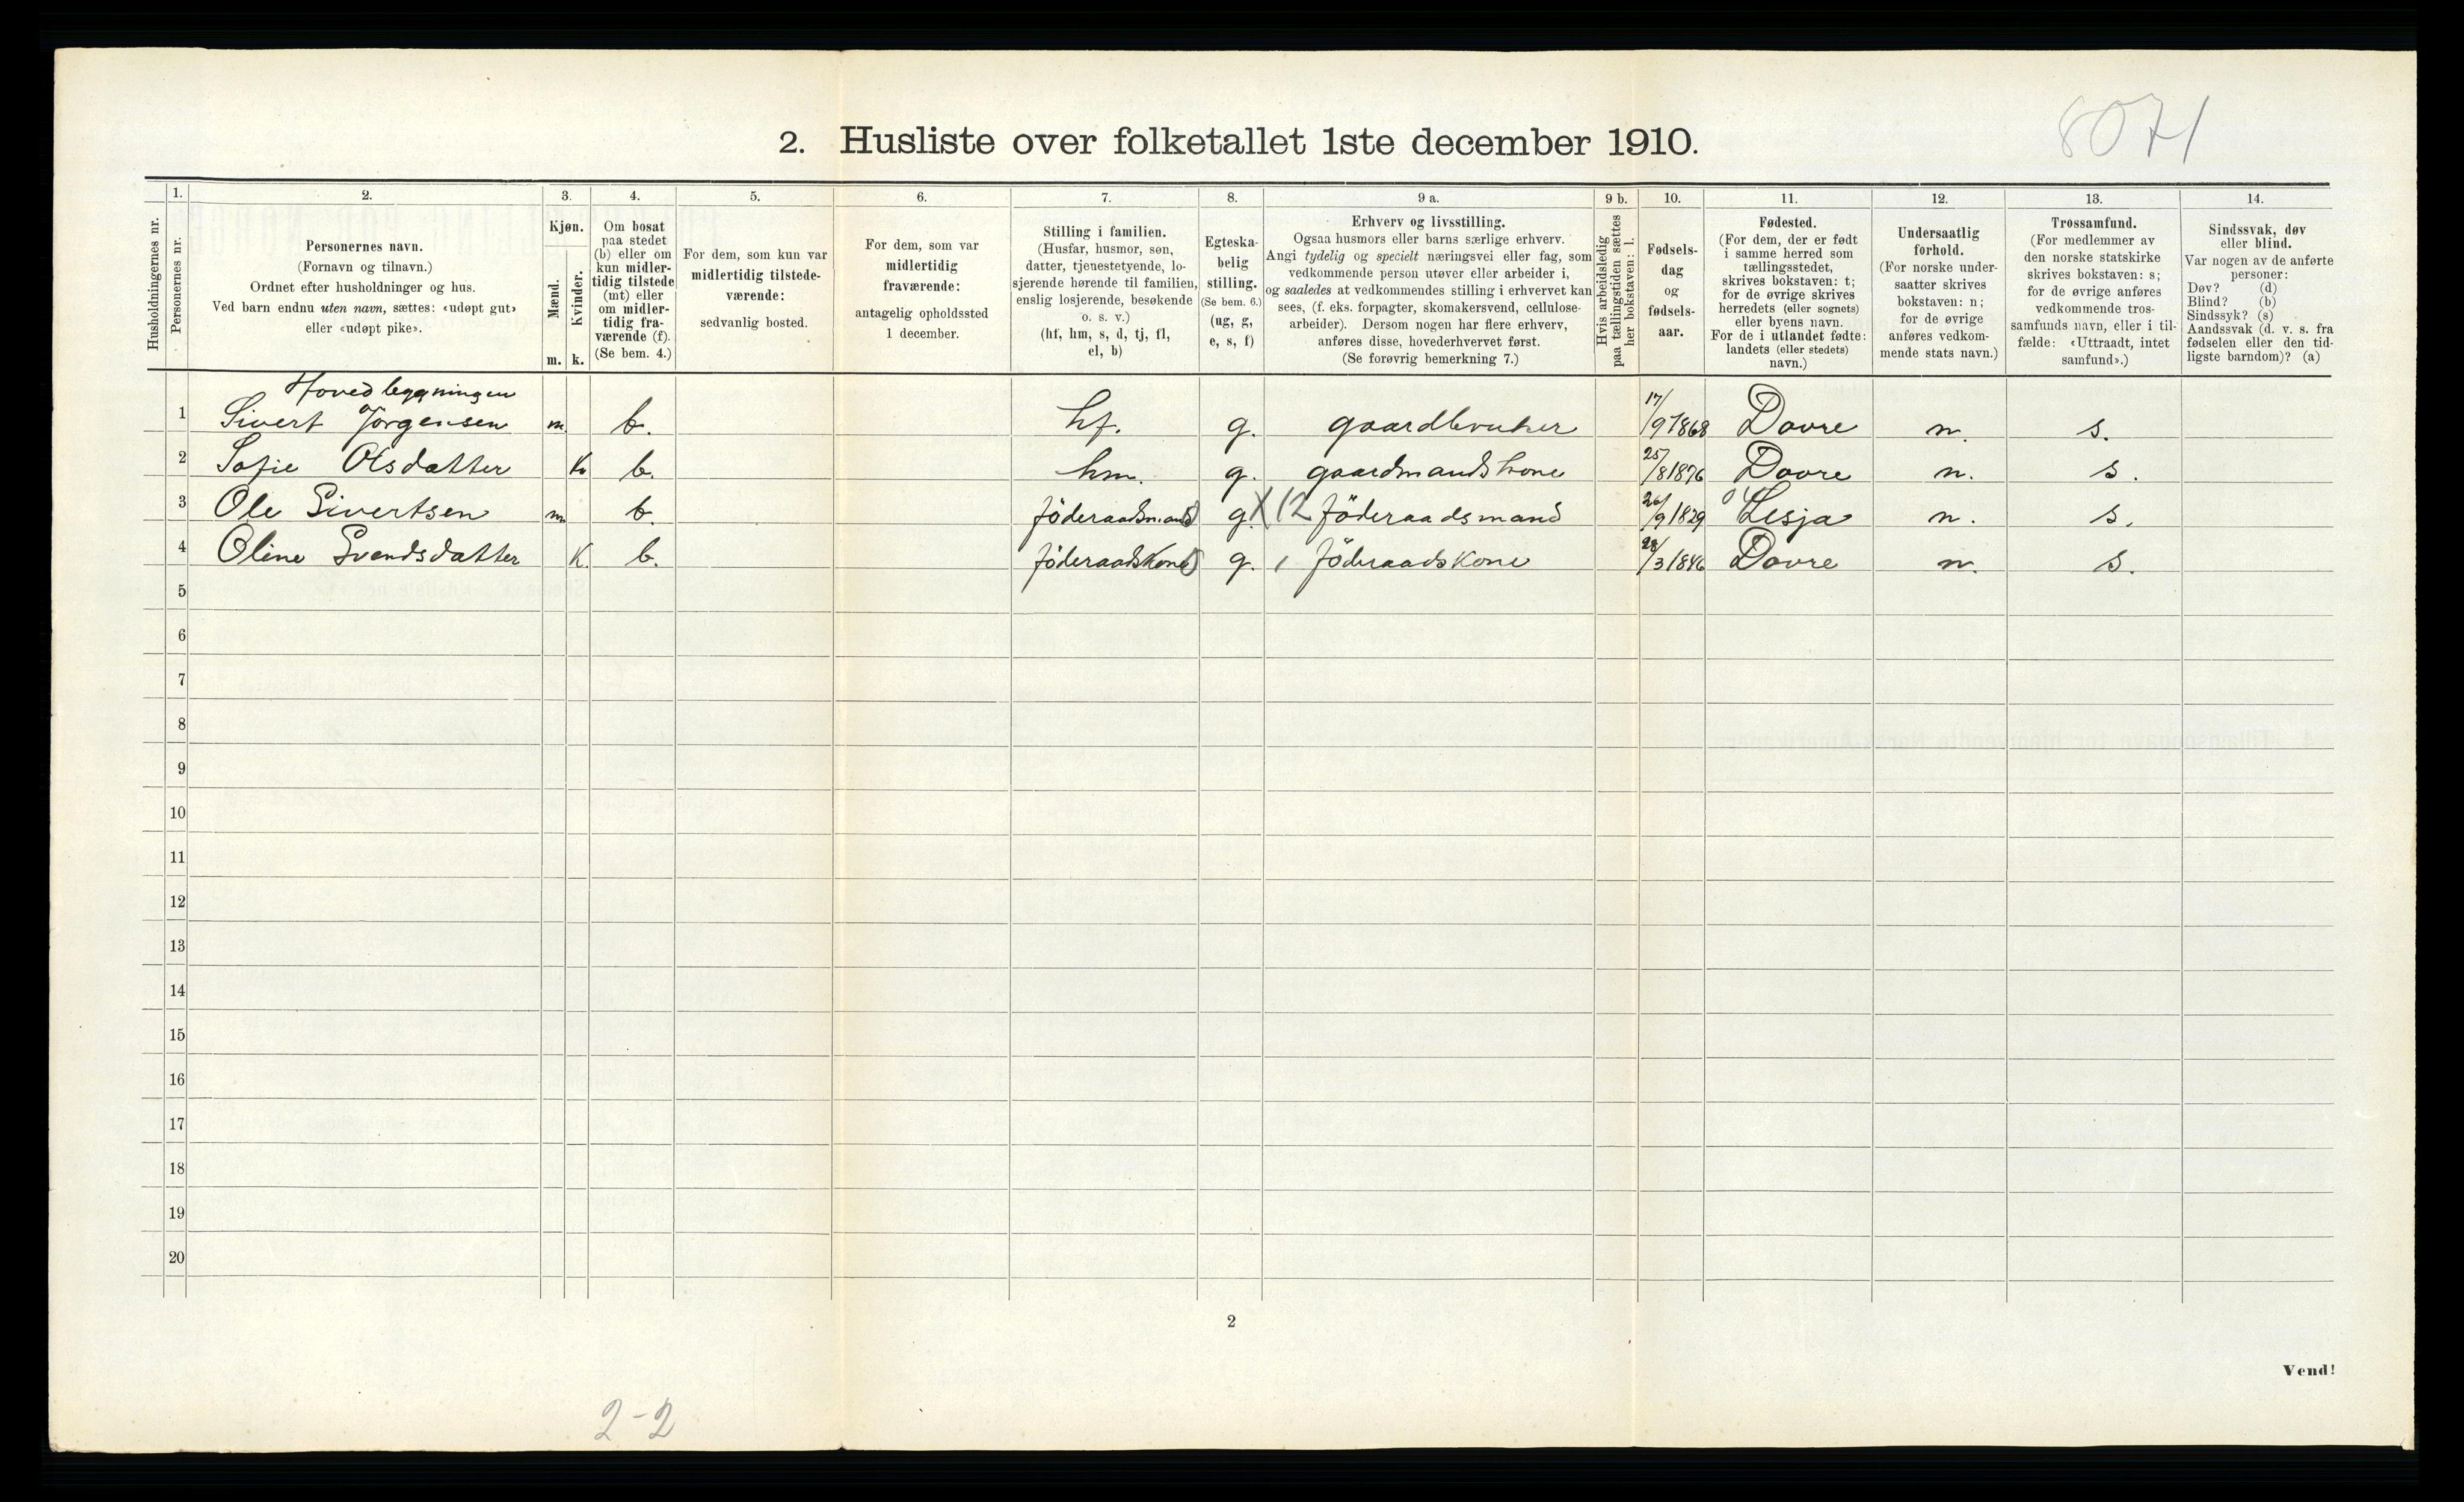 8071
2. Husliste over folketallet 1ste december 1910.
Husholdningernes nr.
1.
Personernes nr.
2.
Personernes navn.
(Fornavn og tilnavn.)
Ordnet efter husholdninger og hus.
Ved barn endnu uten navn, sættes: «udøpt gut»
eller «udøpt pike».
3.
Kjøn.
Mænd.
Kvinder.
m. k.
4.
Om bosat
paa stedet
(b) eller om
kun midler-
tidig tilstede
(mt) eller
om midler-
tidig fra-
værende (f).
(Se bem. 4.)
5.
For dem, som kun var
midlertidig tilstede-
værende:
sedvanlig bosted.
6.
For dem, som var
midlertidig
fraværende:
antagelig opholdssted
1 december.
7.
Stilling i familien.
(Husfar, husmor, søn,
datter, tjenestetyende, lo-
sjerende hørende til familien,
enslig losjerende, besøkende
o. s. v.)
(hf, hm, s, d, tj, fl,
el, b)
8.
Egteska-
belig
stilling.
(Se bem. 6.)
(ug, g,
e, s, f)
9 a.
Erhverv og livsstilling.
Ogsaa husmors eller barns særlige erhverv.
Angi tydelig og specielt næringsvei eller fag, som
vedkommende person utøver eller arbeider i,
og saaledes at vedkommendes stilling i erhvervet kan
sees, (f. eks. forpagter, skomakersvend, cellulose-
arbeider). Dersom nogen har flere erhverv,
anføres disse, hovederhvervet først.
(Se forøvrig bemerkning 7.)
9 b.
Hvis arbeidsledig
paa tællingstiden sættes
her bokstaven: l.
10.
Fødsels-
dag
og
fødsels-
aar.
11.
Fødested.
(For dem, der er født
i samme herred som
tællingsstedet,
skrives bokstaven: t;
for de øvrige skrives
herredets (eller sognets)
eller byens navn.
For de i utlandet fødte:
landets (eller stedets)
navn.)
12.
Undersaatlig
forhold.
(For norske under-
saatter skrives
bokstaven: n;
for de øvrige
anføres vedkom-
mende stats navn.)
13.
Trossamfund.
(For medlemmer av
den norske statskirke
skrives bokstaven: s;
for de øvrige anføres
vedkommende tros-
samfunds navn, eller i til-
fælde: «Uttraadt, intet
samfund».)
14.
Sindssvak, døv
eller blind.
Var nogen av de anførte
personer:
Døv? (d)
Blind? (b)
Sindssyk? (s)
Aandssvak (d. v. s. fra
fødselen eller den tid-
ligste barndom)? (a)
Hovedbygningen
1 Sivert Jörgensen m. b. hf. g. gaardbruker 17/9 1868 Dovre n. s.
2 Sofie Olsdatter k b. hm. g. gaardmandskone 25/8 1876 Dovre n. s.
3 Ole Sivertsen m b. föderaadsmand g. X12 föderaadsmand 26/9 1829 Lesja n. s.
4 Oline Svendsdatter K. b. föderaadskone g. föderaadskone 28/3 1846 Dovre n. s.
5
6
7
8
9
10
11
12
13
14
15
16
17
18
19
20
2
Vend!
2-2